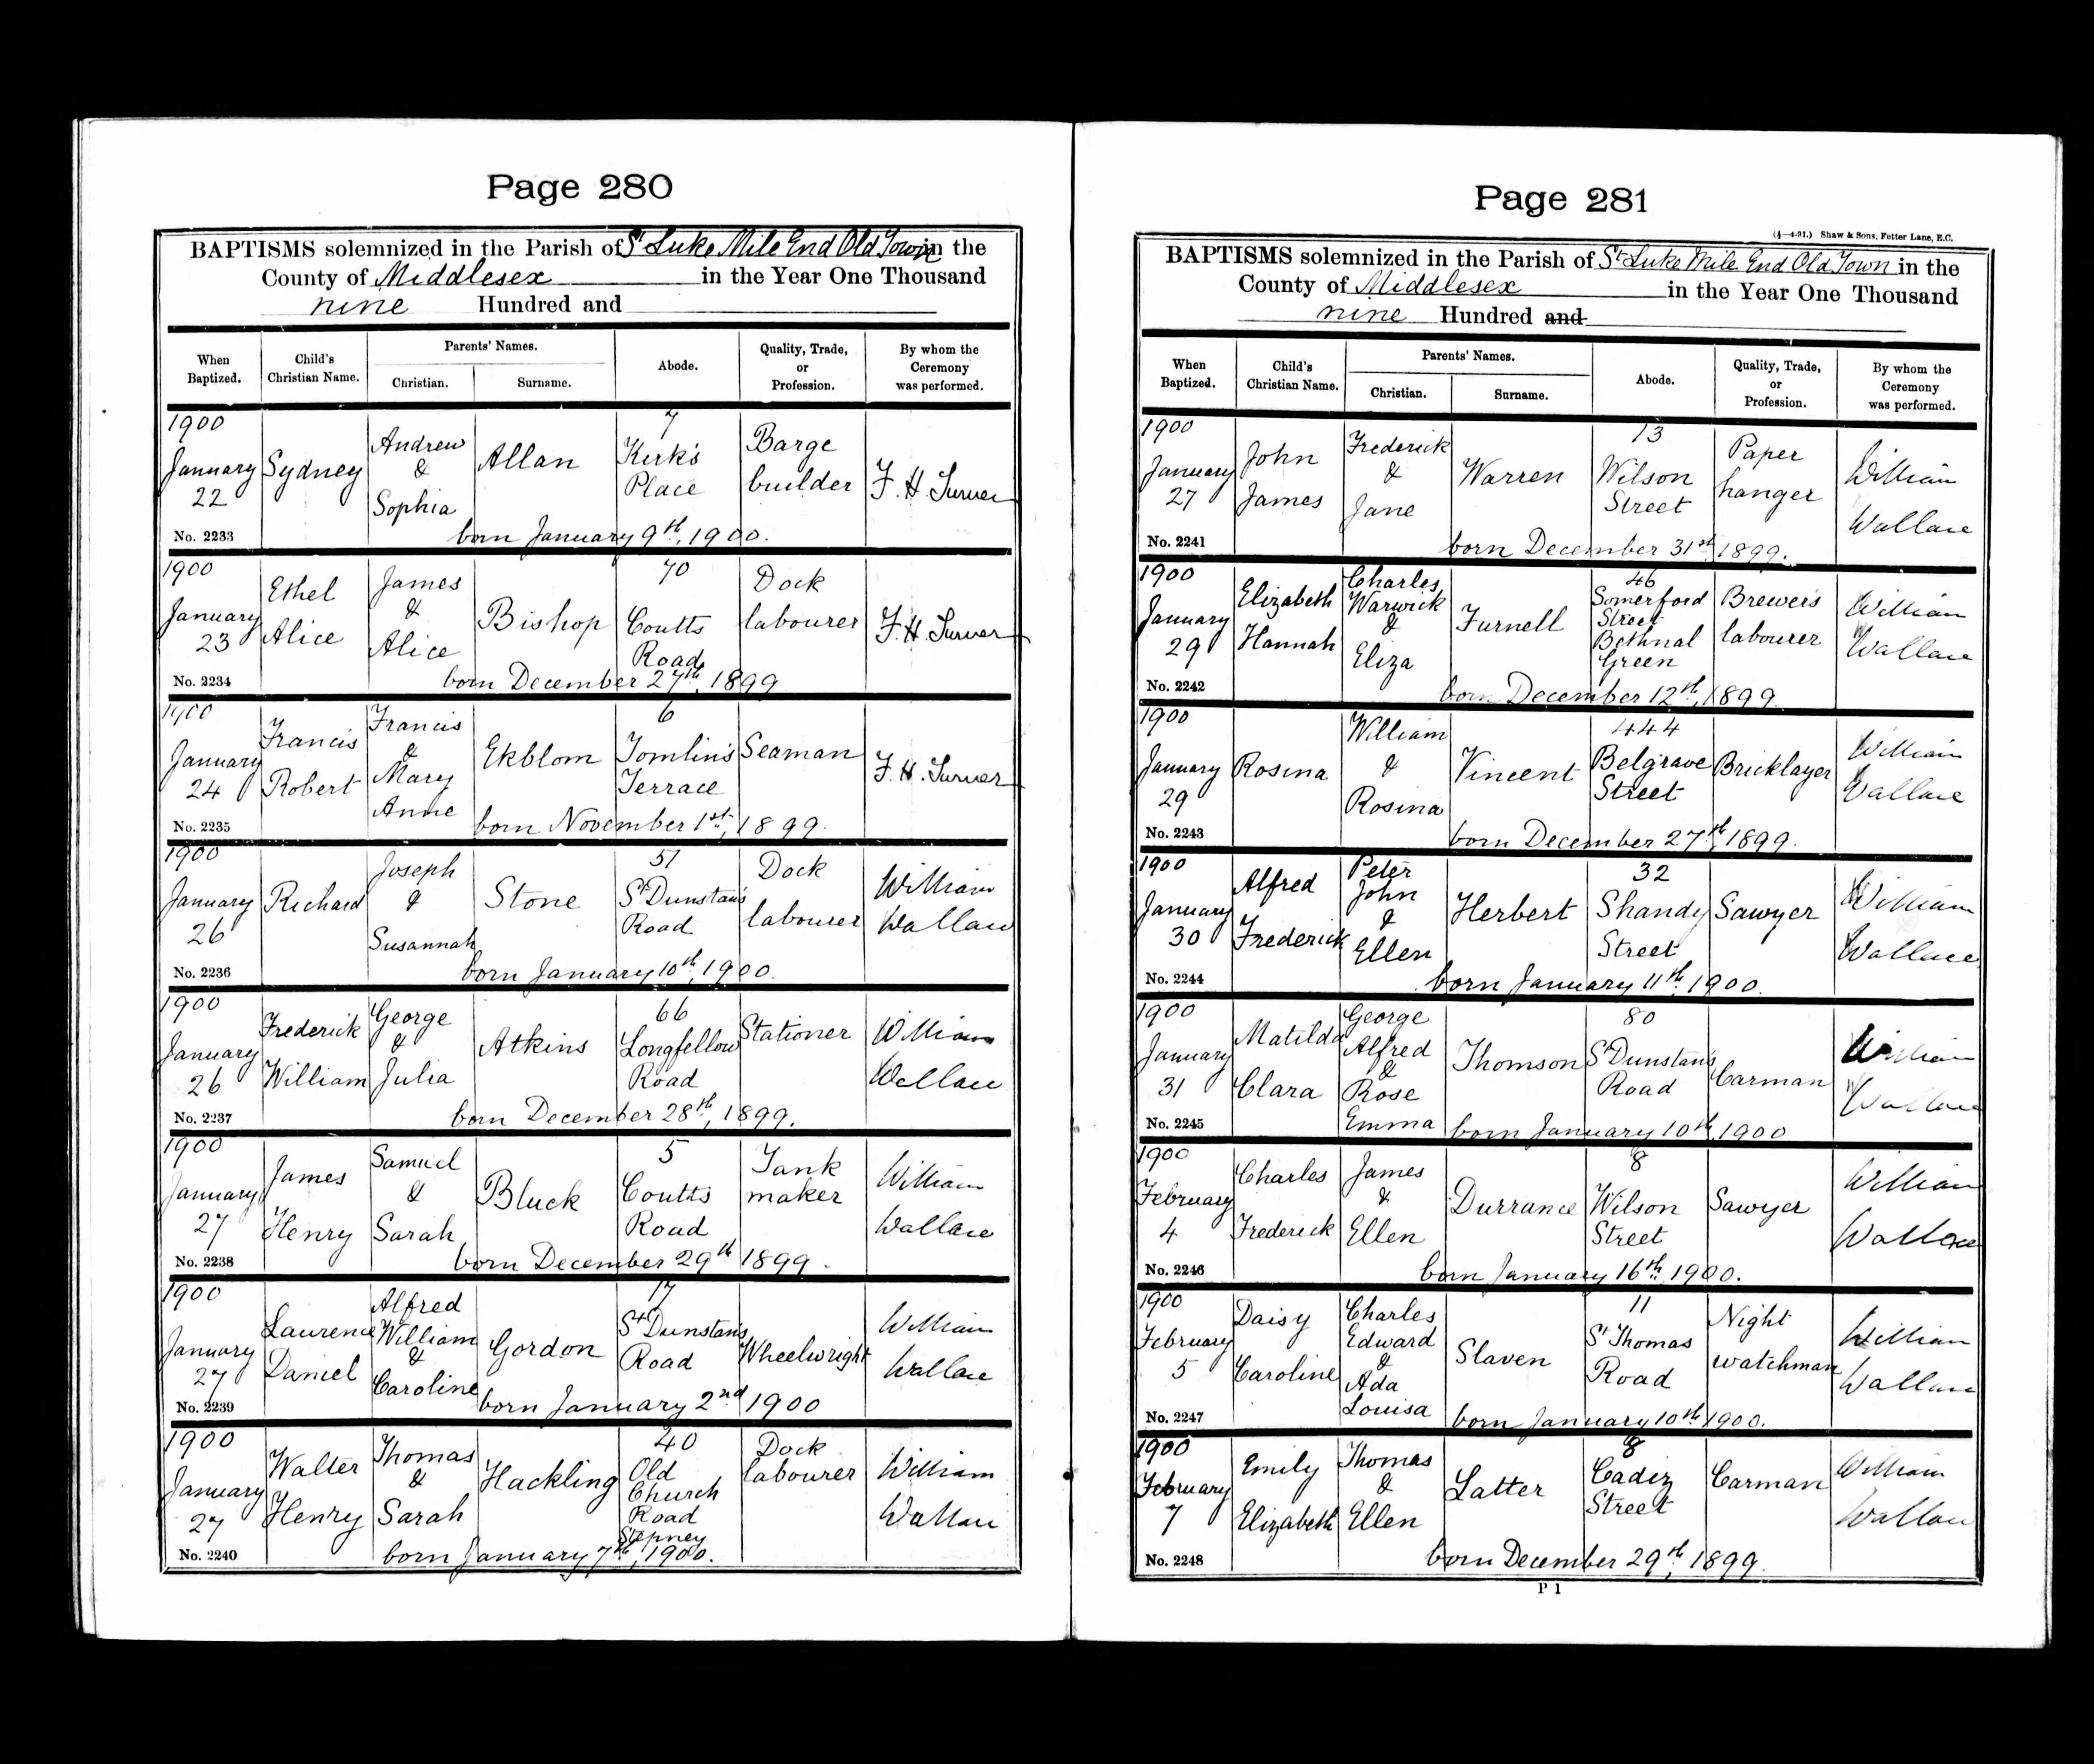 Page 280
BAPTISMS solemnized in the Parish of St Luke Mile End Old Town in the
County of Middlesex in the Year One Thousand
nine Hundred and
When Baptized.
Child's Christian Name.
Parents' Names.
Christian.
Surname.
Abode.
Quality, Trade, or Profession.
By whom the Ceremony was performed.
1900
January
22
No. 2233
Sydney
Andrew
&
Sophia
Allan
7
Kirk's
Place
Barge
builder
F. H. Turner
born January 9th, 1900.
1900
January
23
No. 2234
Ethel
Alice
James
&
Alice
Bishop
70
Coutts
Road
Dock
labourer
F. H. Turner
born December 27th, 1899
1900
January
24
No. 2235
Francis
Robert
Francis
&
Mary
Anne
Ekblom
6
Tomlin's
Terrace
Seaman
F. H. Turner
born November 1st, 1899.
1900
January
26
No. 2236
Richard
Joseph
&
Susannah
Stone
51
St Dunstan's
Road
Dock
labourer
William
Wallace
born January 10th, 1900.
1900
January
26
No. 2237
Frederick
William
George
&
Julia
Atkins
66
Longfellow
Road
Stationer
William
Wallace
born December 28th, 1899.
1900
January
27
No. 2238
James
Henry
Samuel
&
Sarah
Bluck
5
Coutts
Road
Tank
maker
William
Wallace
born December 29th 1899.
1900
January
27
No. 2239
Laurence
Daniel
Alfred
William
&
Caroline
Gordon
17
St Dunstan's
Road
Wheelwright
William
Wallace
born January 2nd 1900
1900
January
27
No. 2240
Walter
Henry
Thomas
&
Sarah
Hackling
40
Old
Church
Road
Stepney
Dock
labourer
William
Wallace
born January 7th, 1900.
Page 281
(4—4-91.) Shaw & Sons, Fetter Lane, E.C.
BAPTISMS solemnized in the Parish of St Luke Mile End Old Town in the
County of Middlesex in the Year One Thousand
nine Hundred and
When Baptized.
Child's Christian Name.
Parents' Names.
Christian.
Surname.
Abode.
Quality, Trade, or Profession.
By whom the Ceremony was performed.
1900
January
27
No. 2241
John
James
Frederick
&
Jane
Warren
13
Wilson
Street
Paper
hanger
William
Wallace
born December 31st 1899.
1900
January
29
No. 2242
Elizabeth
Hannah
Charles
Warwick
&
Eliza
Furnell
46
Somerford
Street
Bethnal
Green
Brewer's
labourer
William
Wallace
born December 12th, 1899.
1900
January
29
No. 2243
Rosina
William
&
Rosina
Vincent
444
Belgrave
Street
Bricklayer
William
Wallace
born December 27th, 1899.
1900
January
30
No. 2244
Alfred
Frederick
Peter
John
&
Ellen
Herbert
32
Shandy
Street
Sawyer
William
Wallace
born January 11th, 1900.
1900
January
31
No. 2245
Matilda
Clara
George
Alfred
&
Rose
Emma
Thomson
80
St Dunstan's
Road
Carman
William
Wallace
born January 10th, 1900
1900
February
4
No. 2246
Charles
Frederick
James
&
Ellen
Durrance
8
Wilson
Street
Sawyer
William
Wallace
born January 16th, 1900.
1900
February
5
No. 2247
Daisy
Caroline
Charles
Edward
&
Ada
Louisa
Slaven
11
St Thomas
Road
Night
watchman
William
Wallace
born January 10th 1900.
1900
February
7
No. 2248
Emily
Elizabeth
Thomas
&
Ellen
Latter
8
Cadiz
Street
Carman
William
Wallace
born December 29th, 1899.
P 1